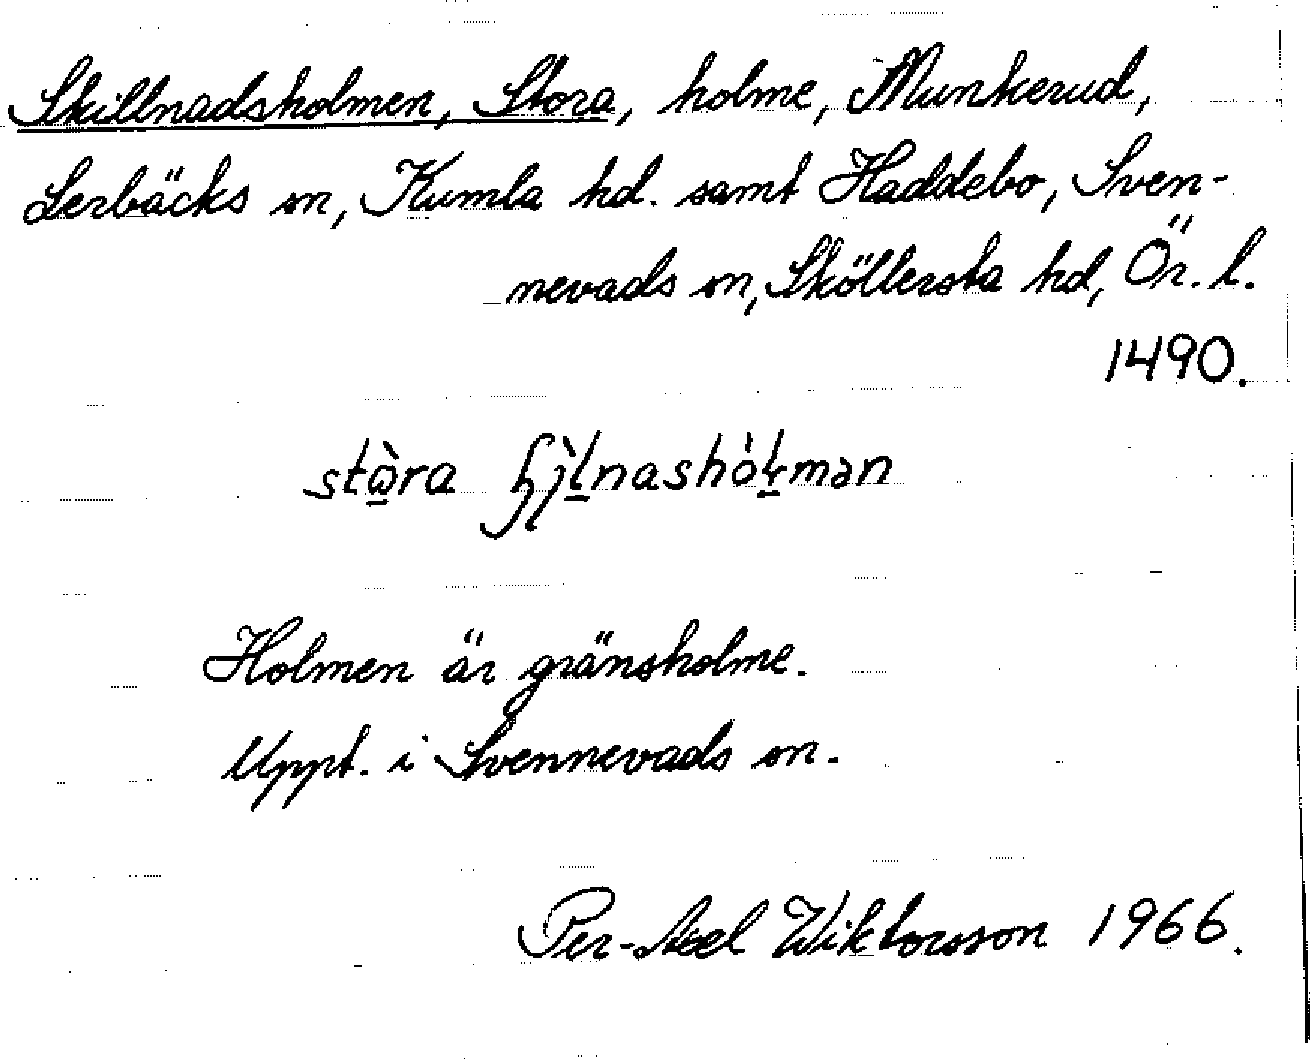 Skillnadsholmen, Stora, holme, Munkerud,
Lerbäcks sn, Kumla hd. samt Haddebo, Sven-
nevads sn, Sköllersta hd, Ör. l.
1490.
Holmen är gränsholme.
Uppt. i Svennevads sn.
Per-Axel Wiktorsson 1966.